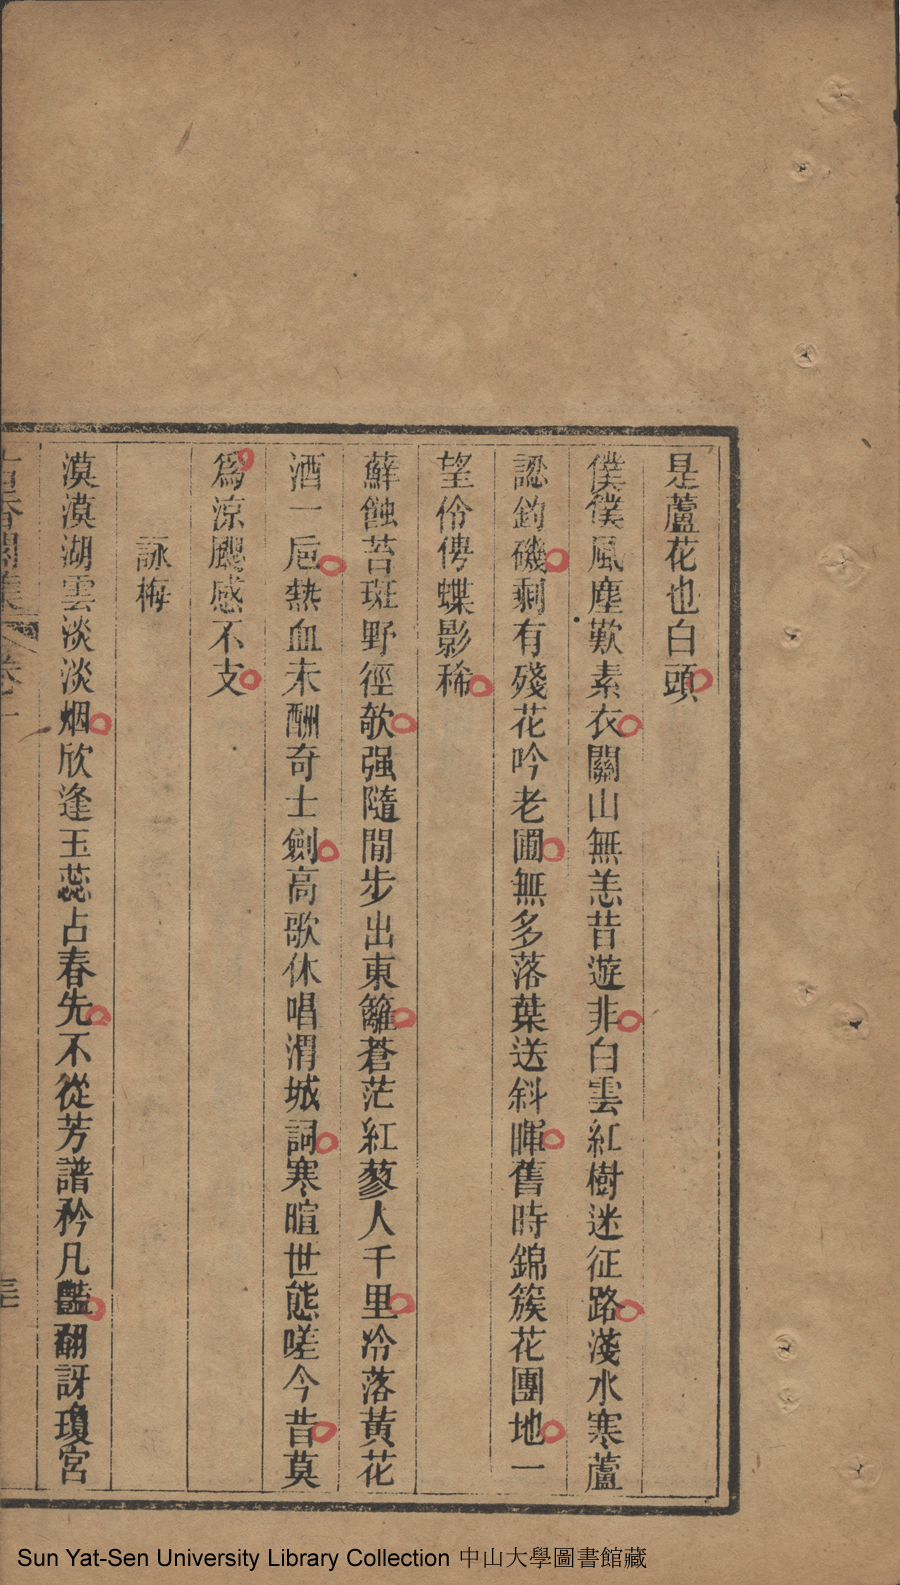 是蘆花也白頭
僕僕風塵歎素衣關山無恙昔遊非白雲紅樹迷征路淺水寒蘆
認釣磯剩有殘花吟老圃無多落葉送斜暉舊時錦簇花團地一
望伶俜蝶影稀
蘚蝕苔斑野徑欹强隨閒步出東籬蒼茫紅蓼人千里冷落黃花
酒一巵熱血未酬奇士劍高歌休唱渭城詞寒暄世態嗟今昔莫
爲涼颸感不支
詠梅
漠漠湖雲淡淡烟欣逢玉蕊占春先不從芳譜矜凡豔翻訝瓊宮
古香閣集 卷一
Sun Yat-Sen University Library Collection 中山大學圖書館藏